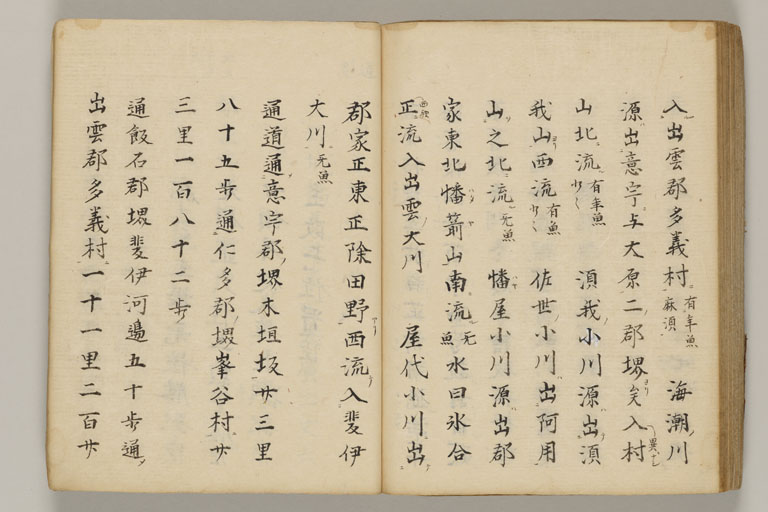 入出雲郡多義村 有年魚麻須 海潮川
源出意宇与大原二郡堺矣入村
山北流 有年魚少〻 湏我小川源出湏
我山西流 有魚少〻 佐世小川出阿用
山之北流 无魚 幡屋小川源出郡
家東北幡箭山南流 无魚 水曰氷合
正流入出雲大川 屋代小川出
郡家正東正除田野西流入斐伊
大川 无魚
通道通意宇郡堺木垣坂廿三里
八十五歩通仁多郡堺峯谷村廿
三里一百八十二歩
通飯石郡堺斐伊河邉五十歩通
出雲郡多義村一十一里二百廿